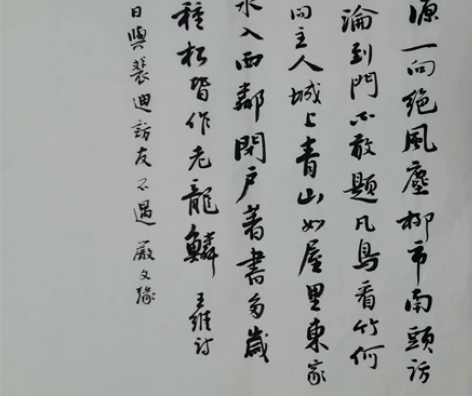 源一向絕風塵柳市南頭訪
淪到門不敢題凡鳥看竹何
問主人城上青山如屋里東家
水入西鄰閉戶著書多歲
種松皆作老龍鱗 王維詩
日與裴迪訪友不遇 嚴文